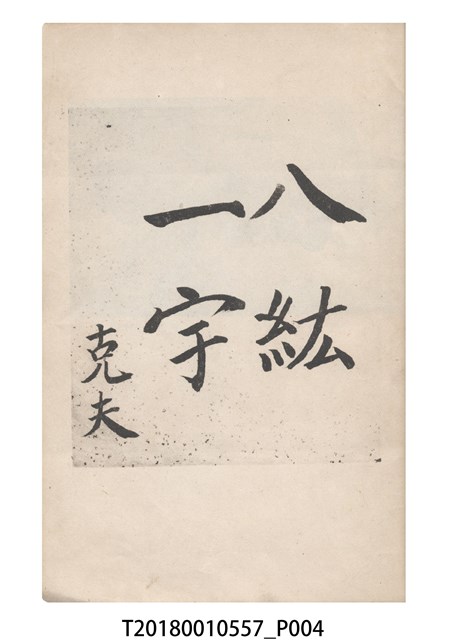 八紘
一宇
克夫
T20180010557_P004